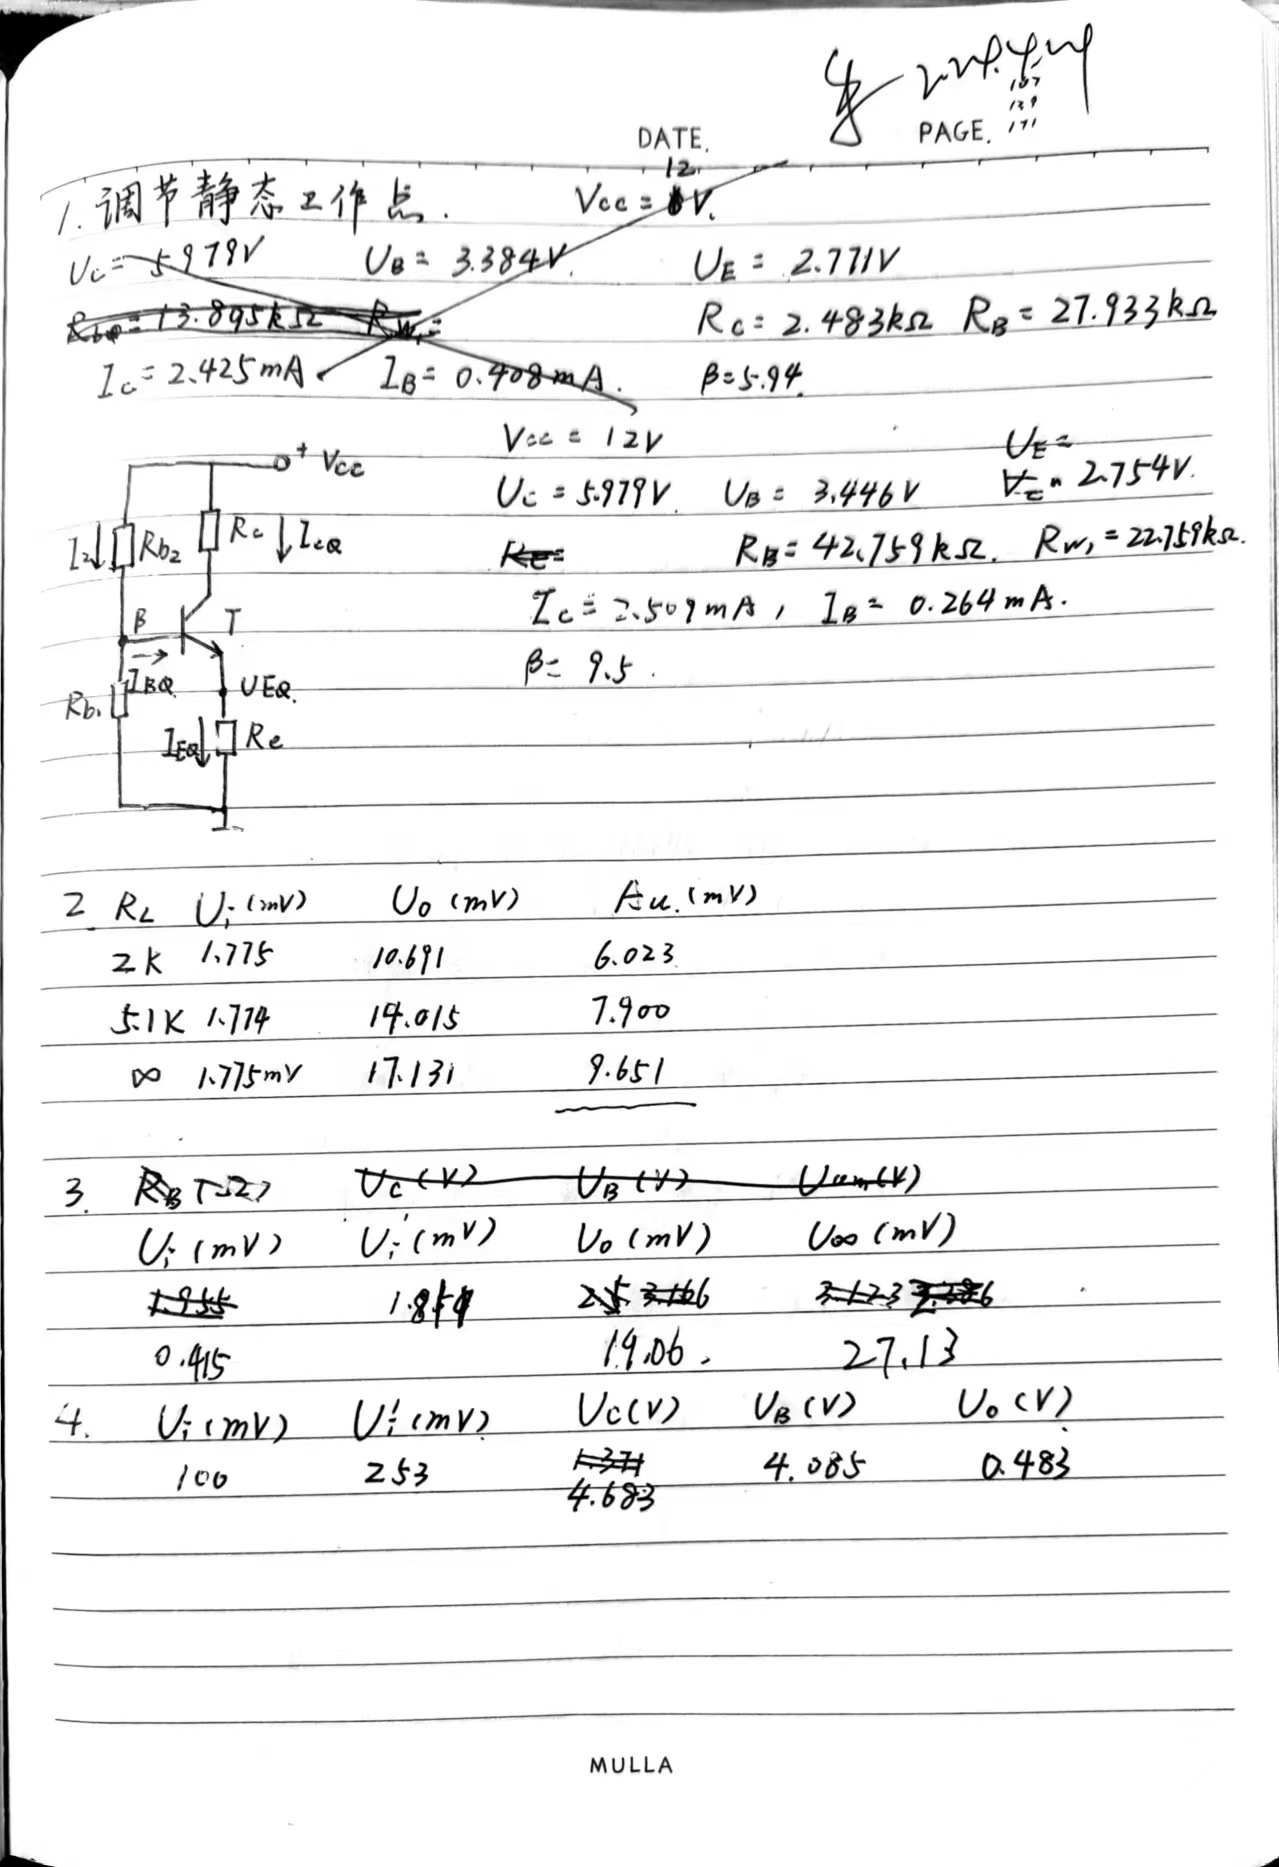 DATE.
PAGE.
107
139
171
1. 调节静态工作点.
12
Vcc = V.
Uc = 5.979V UB = 3.384V. UE = 2.771V
Rb2 = 13.895kΩ RW1= Rc = 2.483kΩ RB = 27.933kΩ
Ic = 2.425mA. IB = 0.408mA. β=5.94.
Vcc = 12V
Uc = 5.979V UB = 3.446V UE =
2.754V.
RB = 42.759kΩ. RW1 = 22.759kΩ.
Ic = 2.509mA, IB = 0.264mA.
β= 9.5.
+ Vcc
I2 Rb2 Rc IcQ
B T
IBQ UEQ.
Rb1
IEQ Re
2. RL Ui (mV) Uo (mV) Au. (mV)
2K 1.775 10.691 6.023
5.1K 1.774 14.015 7.900
∞ 1.775mV 17.131 9.651
3. RB (Ω) Uc (V) UB (V)
Ui (mV) Ui' (mV) Uo (mV) U∞ (mV)
1.955 1.854 3.166
0.415 19.06. 27.13
4. Ui (mV) Ui' (mV) Uc(V) UB (V) Uo (V)
100 253 1.371 4.085 0.483
4.683
MULLA